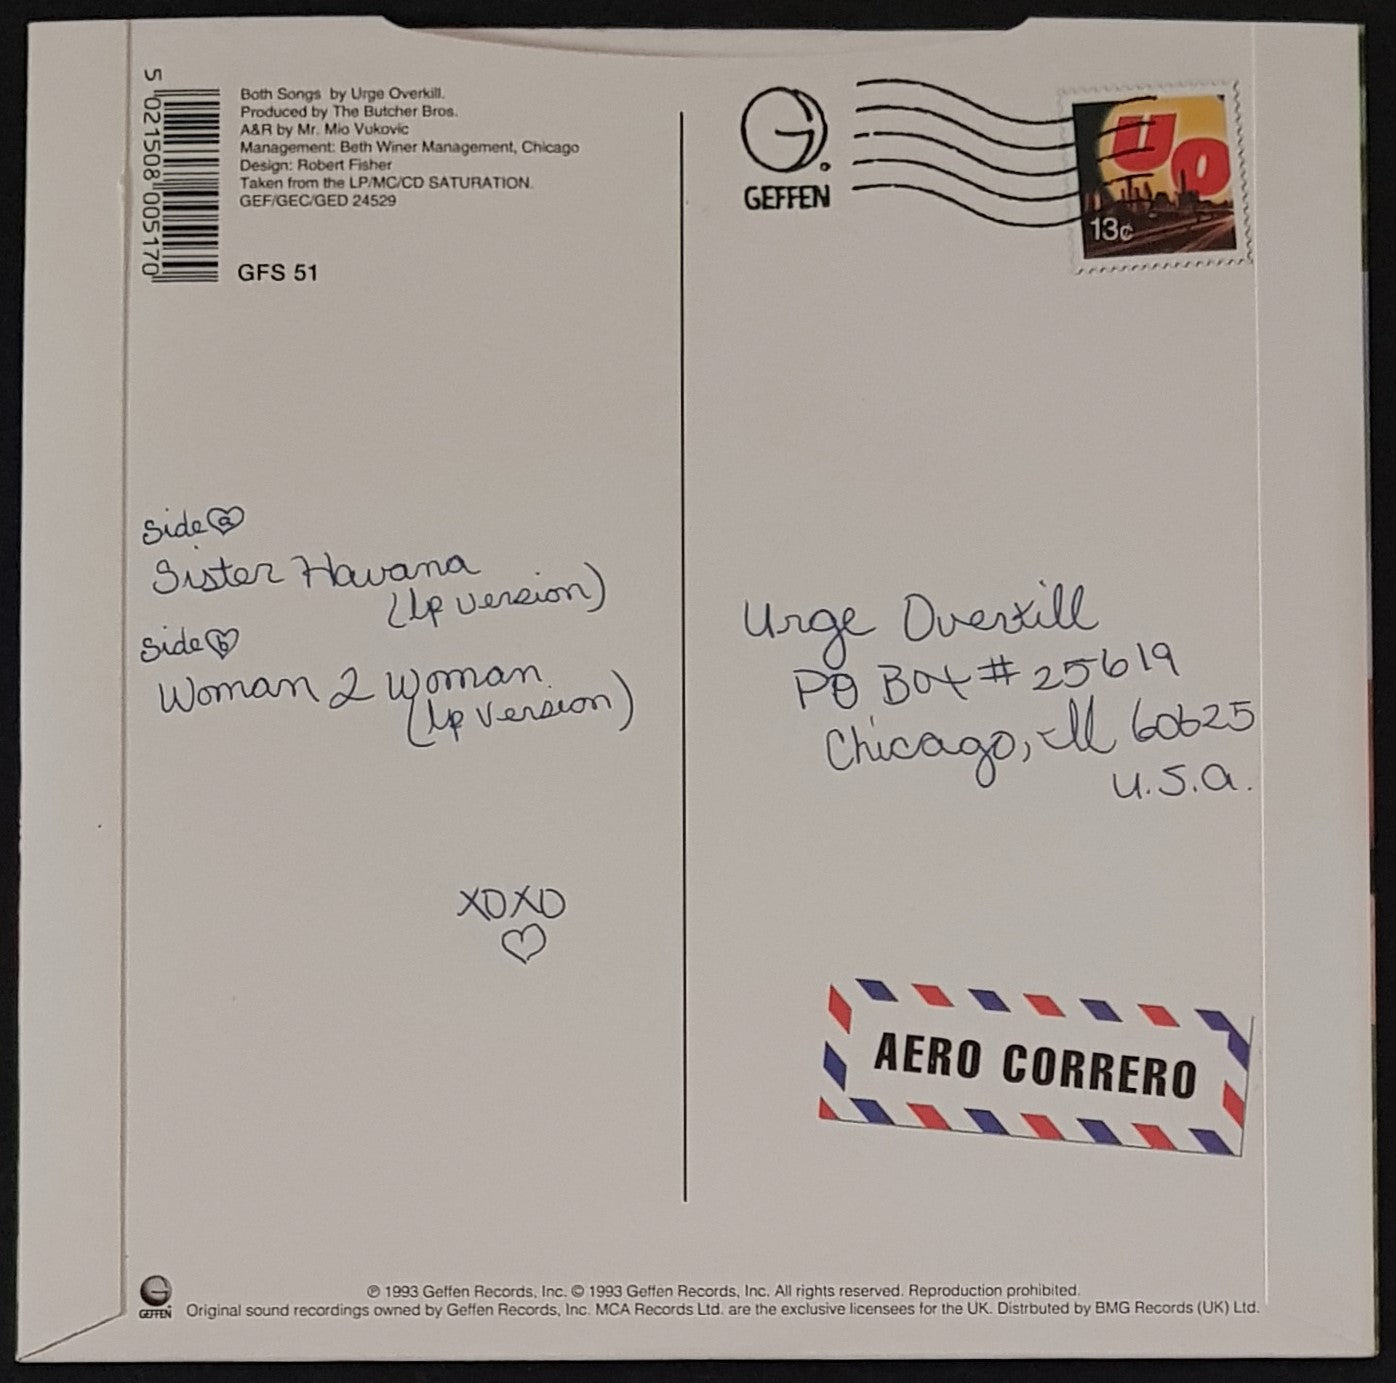 5 021508 005170
Both Songs by Urge Overkill.
Produced by The Butcher Bros.
A&R by Mr. Mio Vukovic
Management: Beth Winer Management, Chicago
Design: Robert Fisher
Taken from the LP/MC/CD SATURATION.
GEF/GEC/GED 24529
GFS 51
G.
GEFFEN
UO
13¢
Side a
Sister Havana
(Lp version)
Side b
Woman 2 Woman
(Lp version)
XOXO
Urge Overkill
PO Box # 25619
Chicago, Ill 60625
U.S.A.
AERO CORRERO
GEFFEN
℗ 1993 Geffen Records, Inc. © 1993 Geffen Records, Inc. All rights reserved. Reproduction prohibited.
Original sound recordings owned by Geffen Records, Inc. MCA Records Ltd. are the exclusive licensees for the UK. Distrbuted by BMG Records (UK) Ltd.